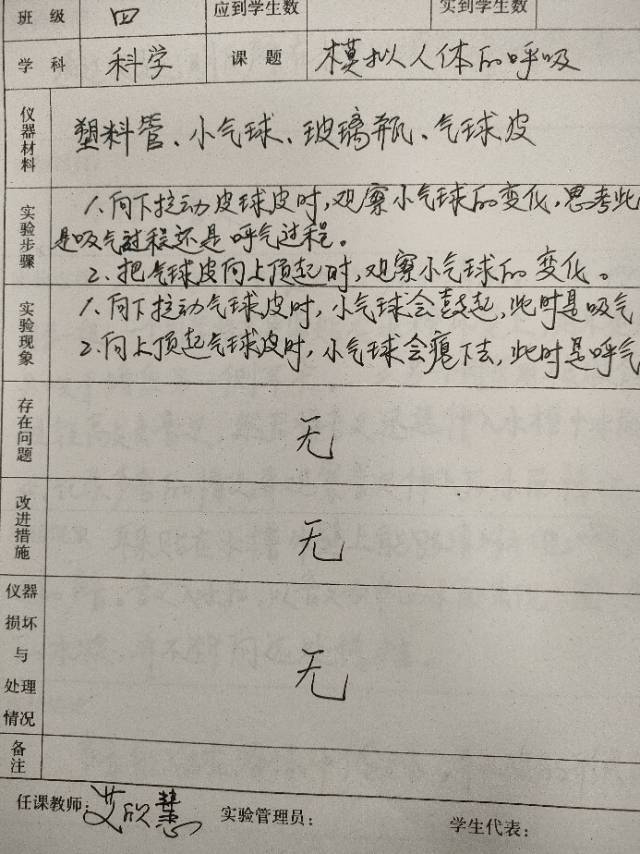 班级 四 应到学生数 实到学生数
学科 科学 课题 模拟人体的呼吸
仪器材料 塑料管、小气球、玻璃瓶、气球皮
实验步骤 1.向下拉动皮球皮时,观察小气球的变化,思考此
是吸气过程还是呼气过程。
2.把气球皮向上顶起时,观察小气球的变化。
实验现象 1.向下拉动气球皮时,小气球会鼓起,此时是吸气
2.向上顶起气球皮时,小气球会瘪下去,此时是呼气
存在问题 无
改进措施 无
仪器损坏与处理情况 无
备注
任课教师:艾欣慧 实验管理员: 学生代表: